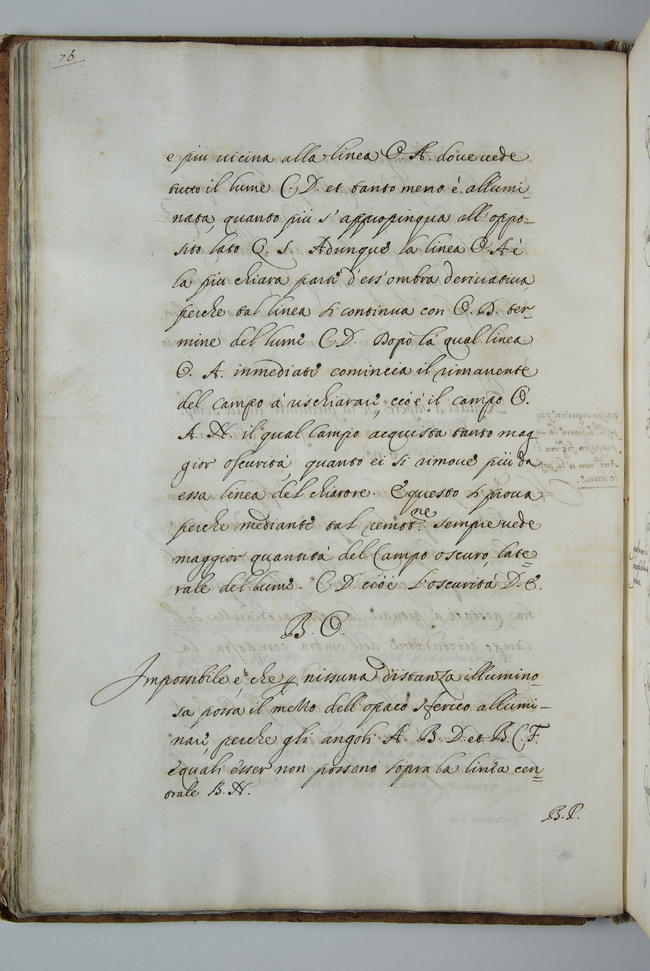 76.
e piu uicina alla linea O. A. doue uede
tutto il lume C. D. et tanto meno è allumi-
nata, quanto più s'appropinqua all'oppo-
sito lato Q. S. Adunque la linea O. A è
la piu chiara parte d'ess'ombra deriuatiua
perche tal linea si continua con O. B. ter-
mine del lume C D. Dopò la qual linea
O. A. inmediate comincia il rimanente
del campo à rischiarare, cioè il campo O.
A. N. il qual campo acquista tanto mag=
gior oscurità, quanto ei si rimoue più da
essa linea del chiarore. E questo si proua
perche mediante tal remot.ne sempre uede
maggior quantità del campo oscuro, late=
rale del lume. C. D. cioè l'oscurità D. E.
B. O.
Impossibile è, che nissuna distanza illumino-
sa possa il mezzo dell'opaco sferico allumi-
nare, perche gli angoli A B D. et B C F.
equali esser non possano sopra la linea cen=
trale B. N.
B. P.